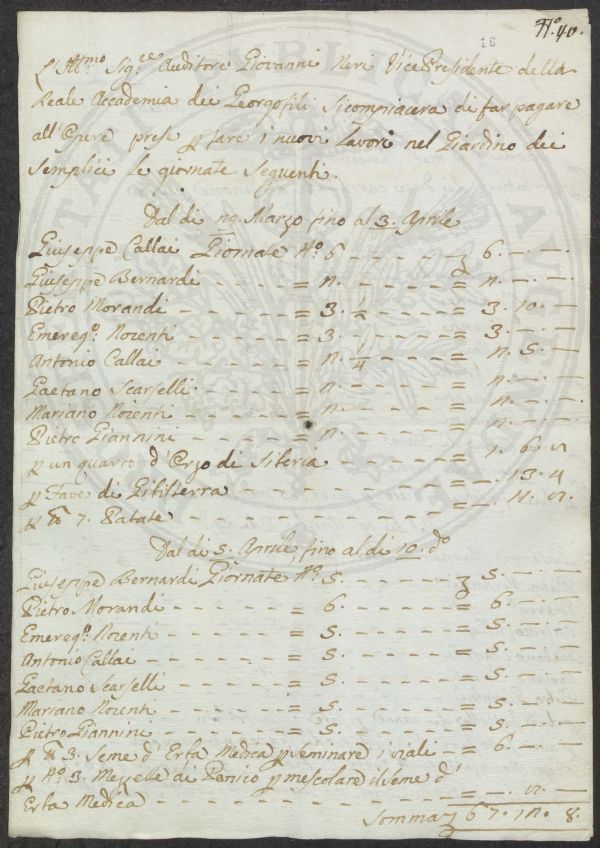 N.° 40.
16
L'Ill.mo Sig.re Auditore Giovanni Neri Vice Presidente della
Reale Accademia dei Georgofili si compiacera di far pagare
all'Opere prese p fare i nuovi Lavori nel Giardino dei
Semplici Le giornate Seguenti.
Dal di 29 Marzo fino al 3. Aprile
Giuseppe Callai Giornate N.° 5 - - - - - 6. - . -
Giuseppe Bernardi - - - - - = 2. - - - - = 2. - . -
Pietro Morandi - - - - - = 3. 1/2 - - - - = 3. 10. -
Emereg.° Nocenti - - - - - = 3. - - - - = 3. - . -
Antonio Callai - - - - - = 2. 1/4 - - - - = 2. 5. -
Gaetano Scarselli - - - - - = 2. - - - - = 2. - . -
Mariano Nocenti - - - - - = 2. - - - - = 2. - . -
Pietro Giannini - - - - - = 2. - - - - = 2. - . -
p un quarto d'Orzo di Siberia - - - - = 1. 6. 2
p Fave di - - - - = -. 13. 4
p ℔ 7. Patate - - - - = -. 11. 2.
Dal di 5. Aprile, fino al di 10. d.°
Giuseppe Bernardi Giornate N.° 5. - - - - 5. - . -
Pietro Morandi - - - - - = 6. - - - - = 6. - . -
Emereg.° Nocenti - - - - - = 5. - - - - = 5. - . -
Antonio Callai - - - - - = 5. - - - - = 5. - . -
Gaetano Scarselli - - - - - = 5. - - - - = 5. - . -
Mariano Nocenti - - - - - = 5. - - - - = 5. - . -
Pietro Giannini - - - - - = 5. - - - - = 5. - . -
p ℔ 3. Seme d'Erba Medica p seminare i viali - - = 6. - . -
p N.° 3. Mezzette di Panico p mescolare il seme d'
Erba Medica - - - - = -. 2. -
Somma 67. 12. 8.